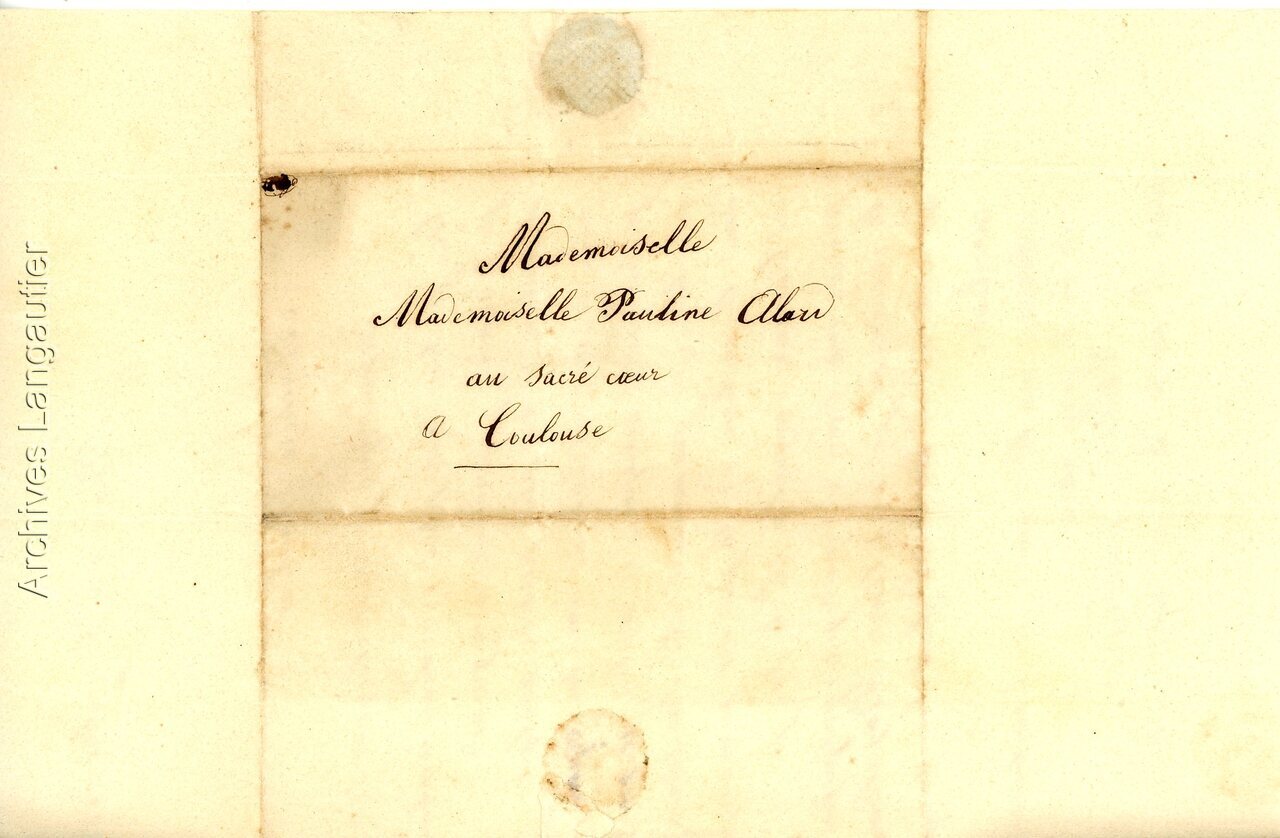 Mademoiselle
Mademoiselle Pauline Alard
au sacré cœur
A Toulouse
Archives Langautier